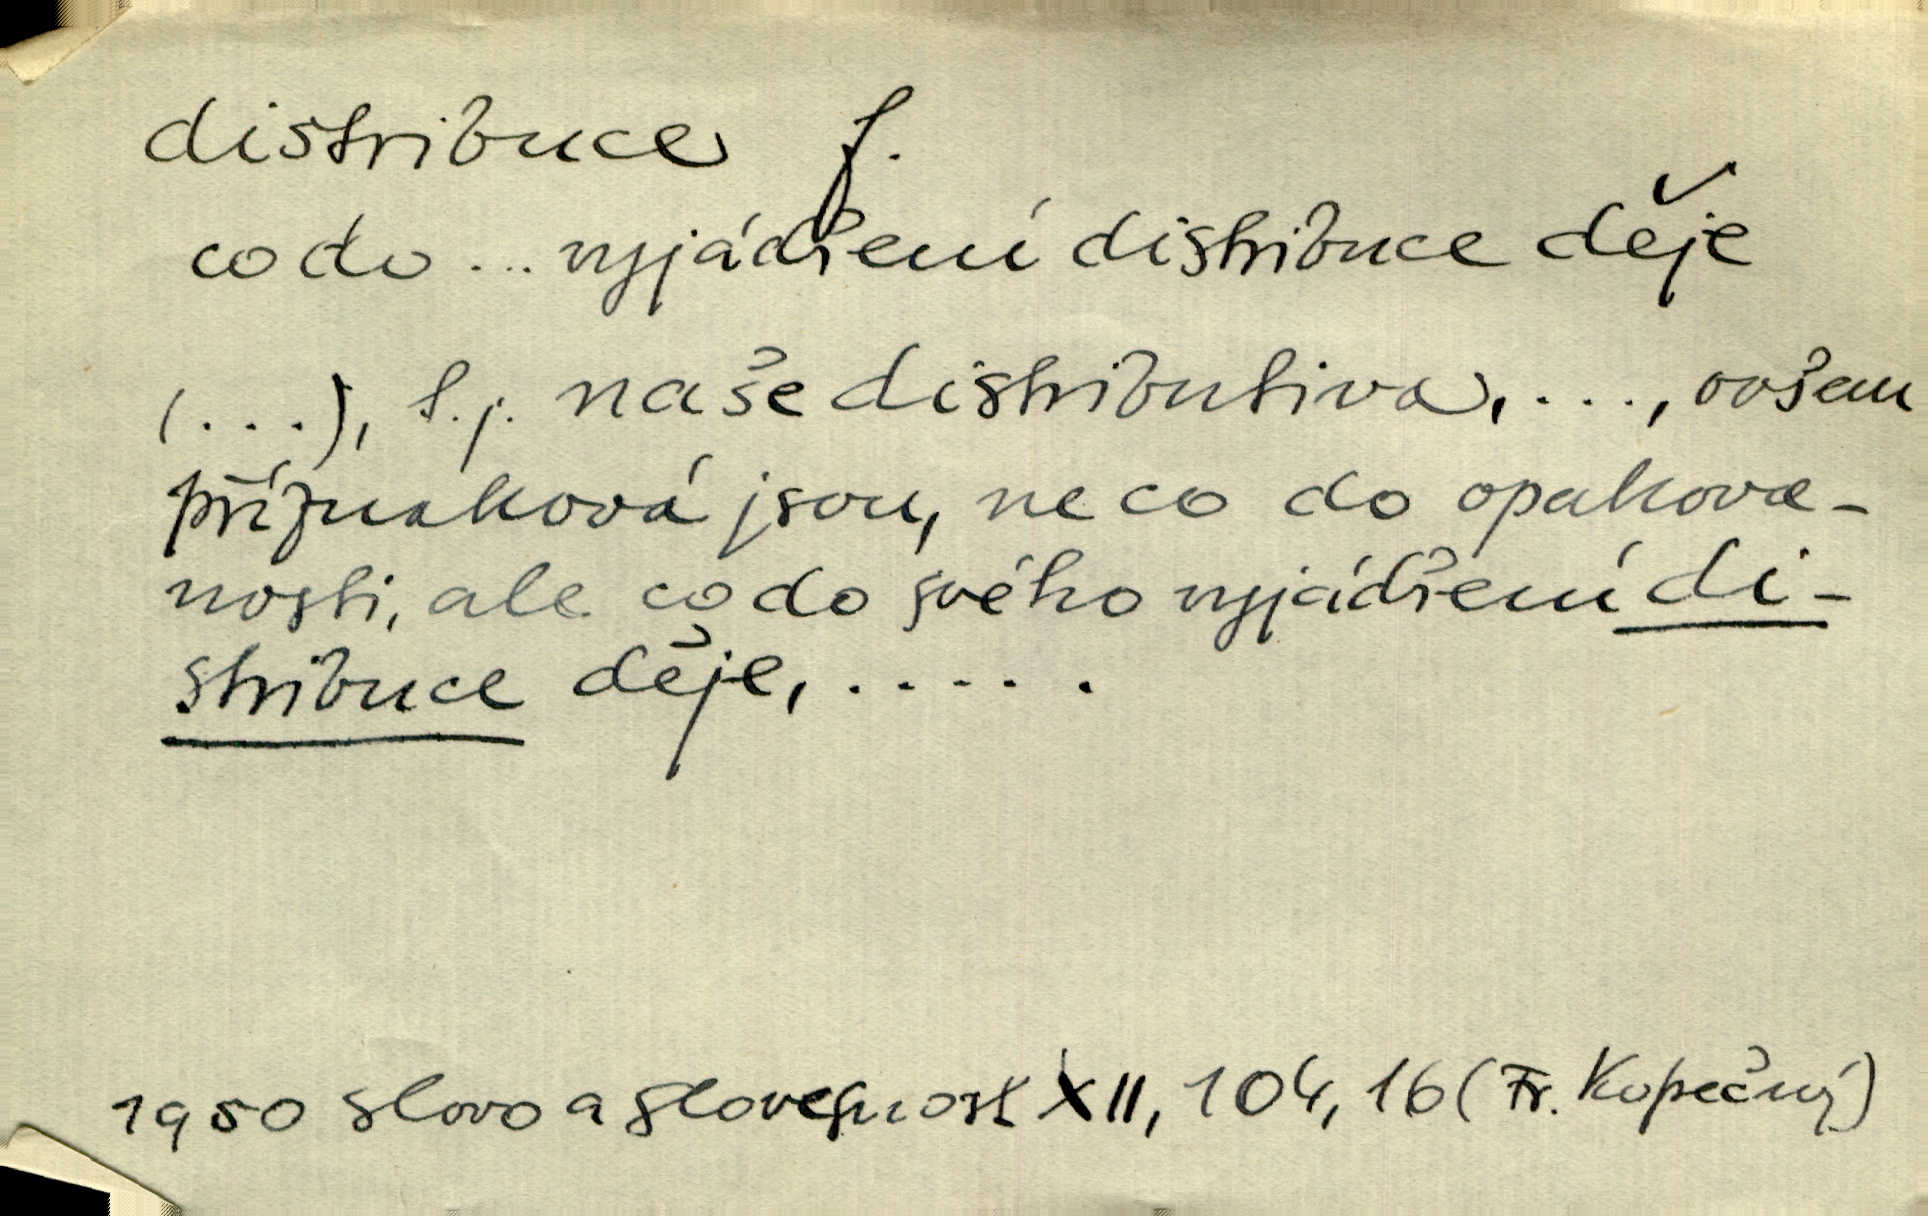 distribuce f.
co do ... vyjádření distribuce děje
(...), t.j. naše distributiva, ...., ovšem
příznaková jsou, ne co do opakova-
nosti, ale co do svého vyjádření di-
stribuce děje, .....
1950 slovo a slovesnost XII, 104, 16 (Fr. Kopečný)